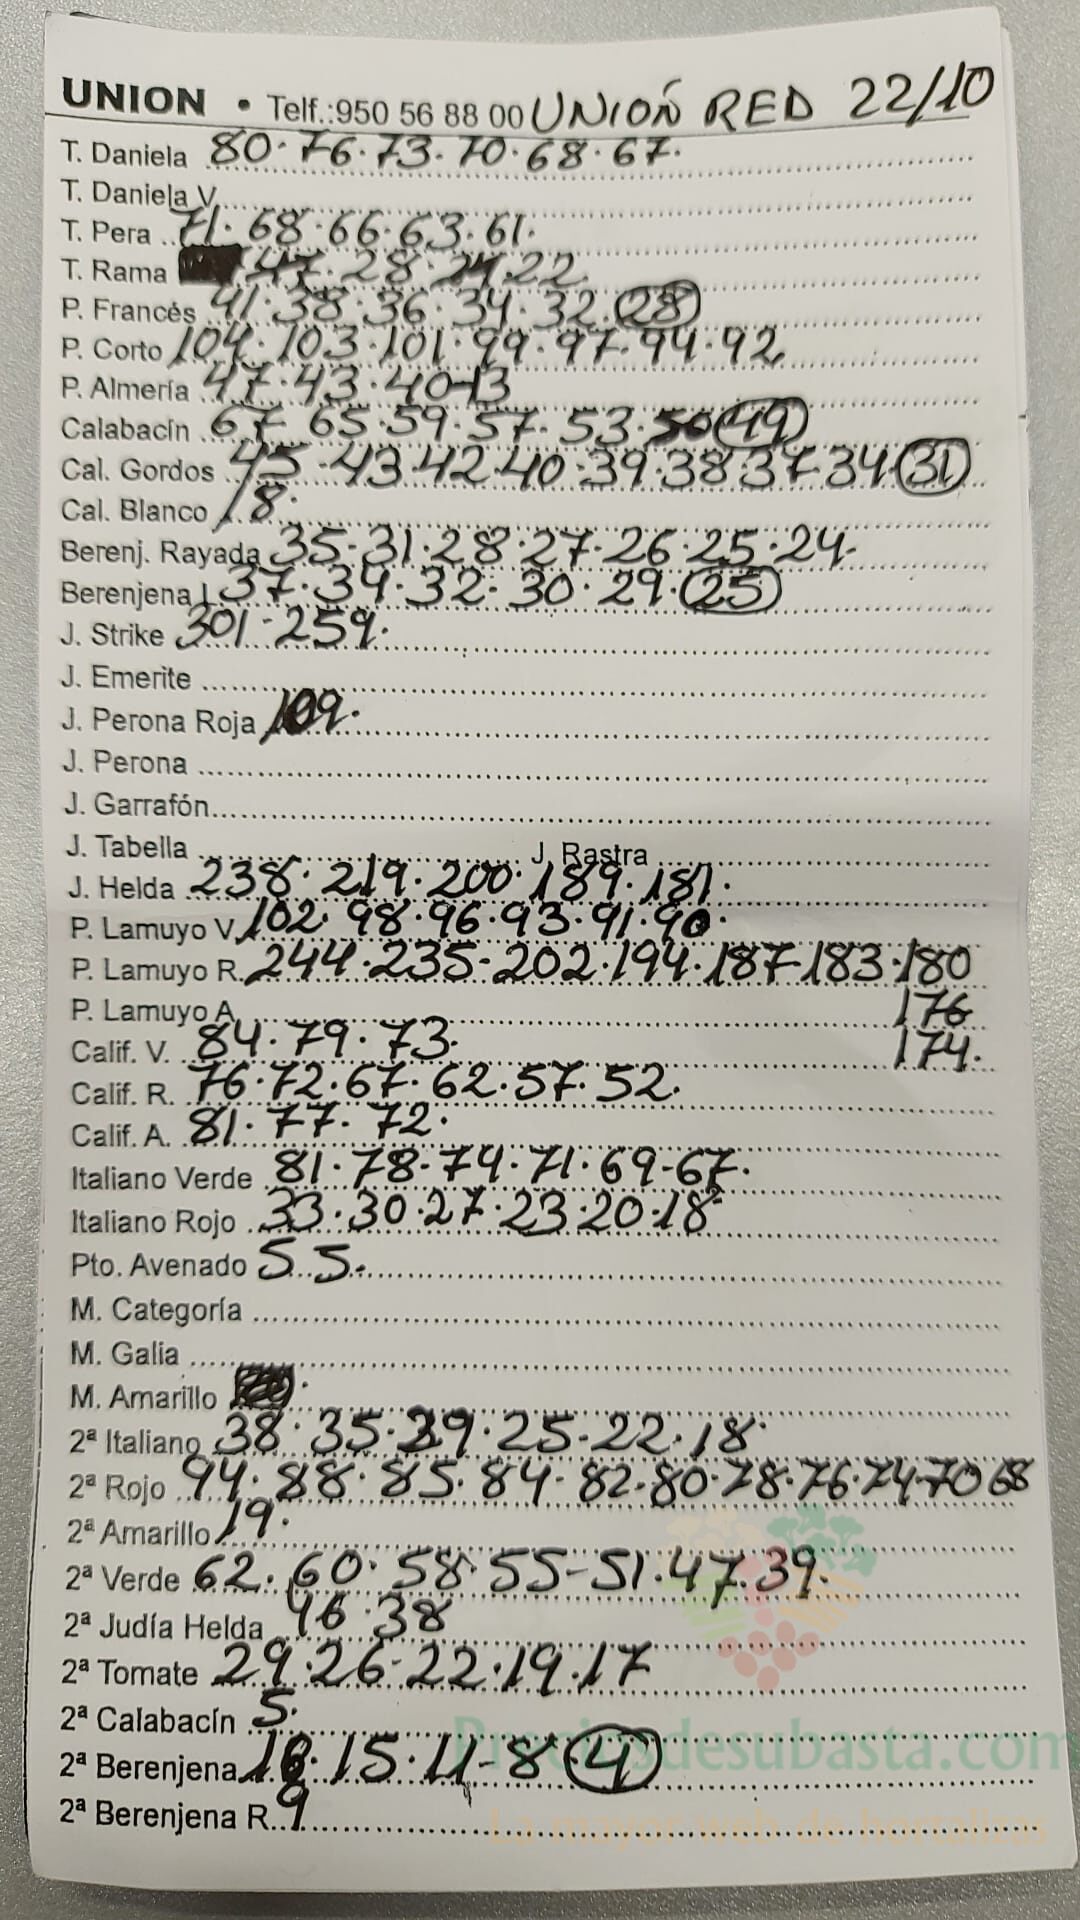 UNION • Telf.:950 56 88 00 UNIÓN RED 22/10
T. Daniela 80·76·73·70·68·67·
T. Daniela V.
T. Pera 71·68·66·63·61·
T. Rama 47·28·24·22
P. Francés 41·38·36·34·32·28
P. Corto 104·103·101·99·97·94·92
P. Almería 47·43·40-13
Calabacín 67 65·59·57·53·50 49
Cal. Gordos 45·43·42·40·39·38·37·34·31
Cal. Blanco 18·
Berenj. Rayada 35-31·28·27·26·25·24-
Berenjena L 37·34·32·30·29·25
J. Strike 301-259·
J. Emerite
J. Perona Roja 109·
J. Perona
J. Garrafón
J. Tabella J. Rastra
J. Helda 238·219·200·189·181·
P. Lamuyo V. 102·98·96·93·91·90·
P. Lamuyo R. 244·235-202·194·187-183·180
P. Lamuyo A. 176
Calif. V. 84·79·73· 174·
Calif. R. 76·72·67·62·57·52·
Calif. A. 81·77·72·
Italiano Verde 81·78-74·71·69-67·
Italiano Rojo 33·30·27·23·20·18
Pto. Avenado 5 5·
M. Categoría
M. Galia
M. Amarillo
2ª Italiano 38·35·29·25-22·18·
2ª Rojo 94·88·85·84-82·80·78·76·74-70 68
2ª Amarillo 19·
2ª Verde 62·60·58·55-51·47·39·
2ª Judía Helda 46·38
2ª Tomate 29·26-22·19·17
2ª Calabacín 5·
2ª Berenjena 18·15·11-8 4
2ª Berenjena R. 9
Preciosdesubasta.com
La mayor web de hortalizas